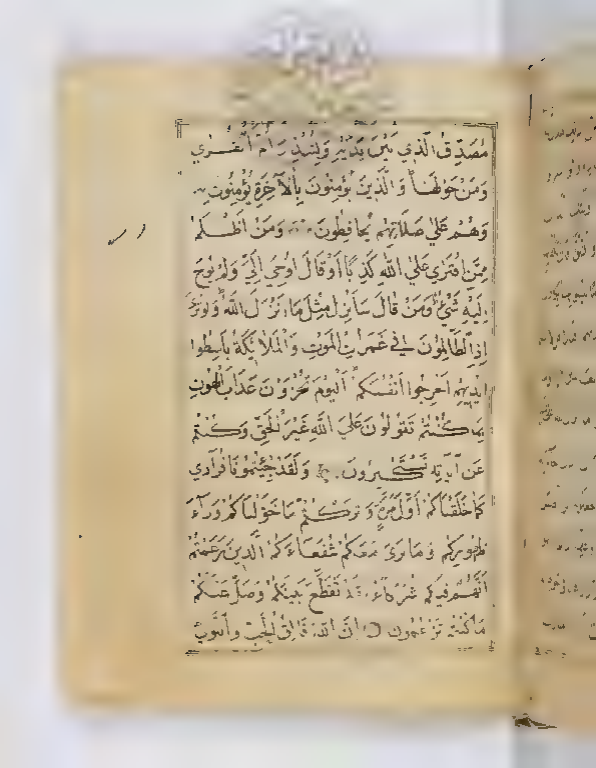 مُصَدِّقُ الَّذِي بَيْنَ يَدَيْهِ وَلِتُنْذِرَ اُمَّ الْقُرٰي
وَمَنْ حَوْلَهَا وَالَّذِينَ يُؤْمِنُونَ بِالْآخِرَةِ يُؤْمِنُونَ بِهِ
وَهُمْ عَلٰي صَلَاتِهِمْ يُحَافِظُونَ وَمَنْ اَظْلَمُ
مِمَّنِ افْتَرٰي عَلَي اللّٰهِ كَذِبًا اَوْ قَالَ اُوحِيَ اِلَيَّ وَلَمْ يُوحَ
اِلَيْهِ شَيْءٌ وَمَنْ قَالَ سَاُنْزِلُ مِثْلَ مَا اَنْزَلَ اللّٰهُ وَلَوْ تَرٰي
اِذِ الظَّالِمُونَ فِي غَمَرَاتِ الْمَوْتِ وَالْمَلَائِكَةُ بَاسِطُوا
اَيْدِيهِمْ اَخْرِجُوا اَنْفُسَكُمُ اَلْيَوْمَ تُجْزَوْنَ عَذَابَ الْهُونِ
بِمَا كُنْتُمْ تَقُولُونَ عَلَي اللّٰهِ غَيْرَ الْحَقِّ وَكُنْتُمْ
عَنْ اٰيَاتِهِ تَسْتَكْبِرُونَ وَلَقَدْ جِئْتُمُونَا فُرَادٰي
كَمَا خَلَقْنَاكُمْ اَوَّلَ مَرَّةٍ وَتَرَكْتُمْ مَا خَوَّلْنَاكُمْ وَرَآءَ
ظُهُورِكُمْ وَمَا نَرٰي مَعَكُمْ شُفَعَاءَكُمُ الَّذِينَ زَعَمْتُمْ
اَنَّهُمْ فِيكُمْ شُرَكَاءُ لَقَدْ تَقَطَّعَ بَيْنَكُمْ وَضَلَّ عَنْكُمْ
مَا كُنْتُمْ تَزْعُمُونَ اِنَّ اللّٰهَ فَالِقُ الْحَبِّ وَالنَّوٰي